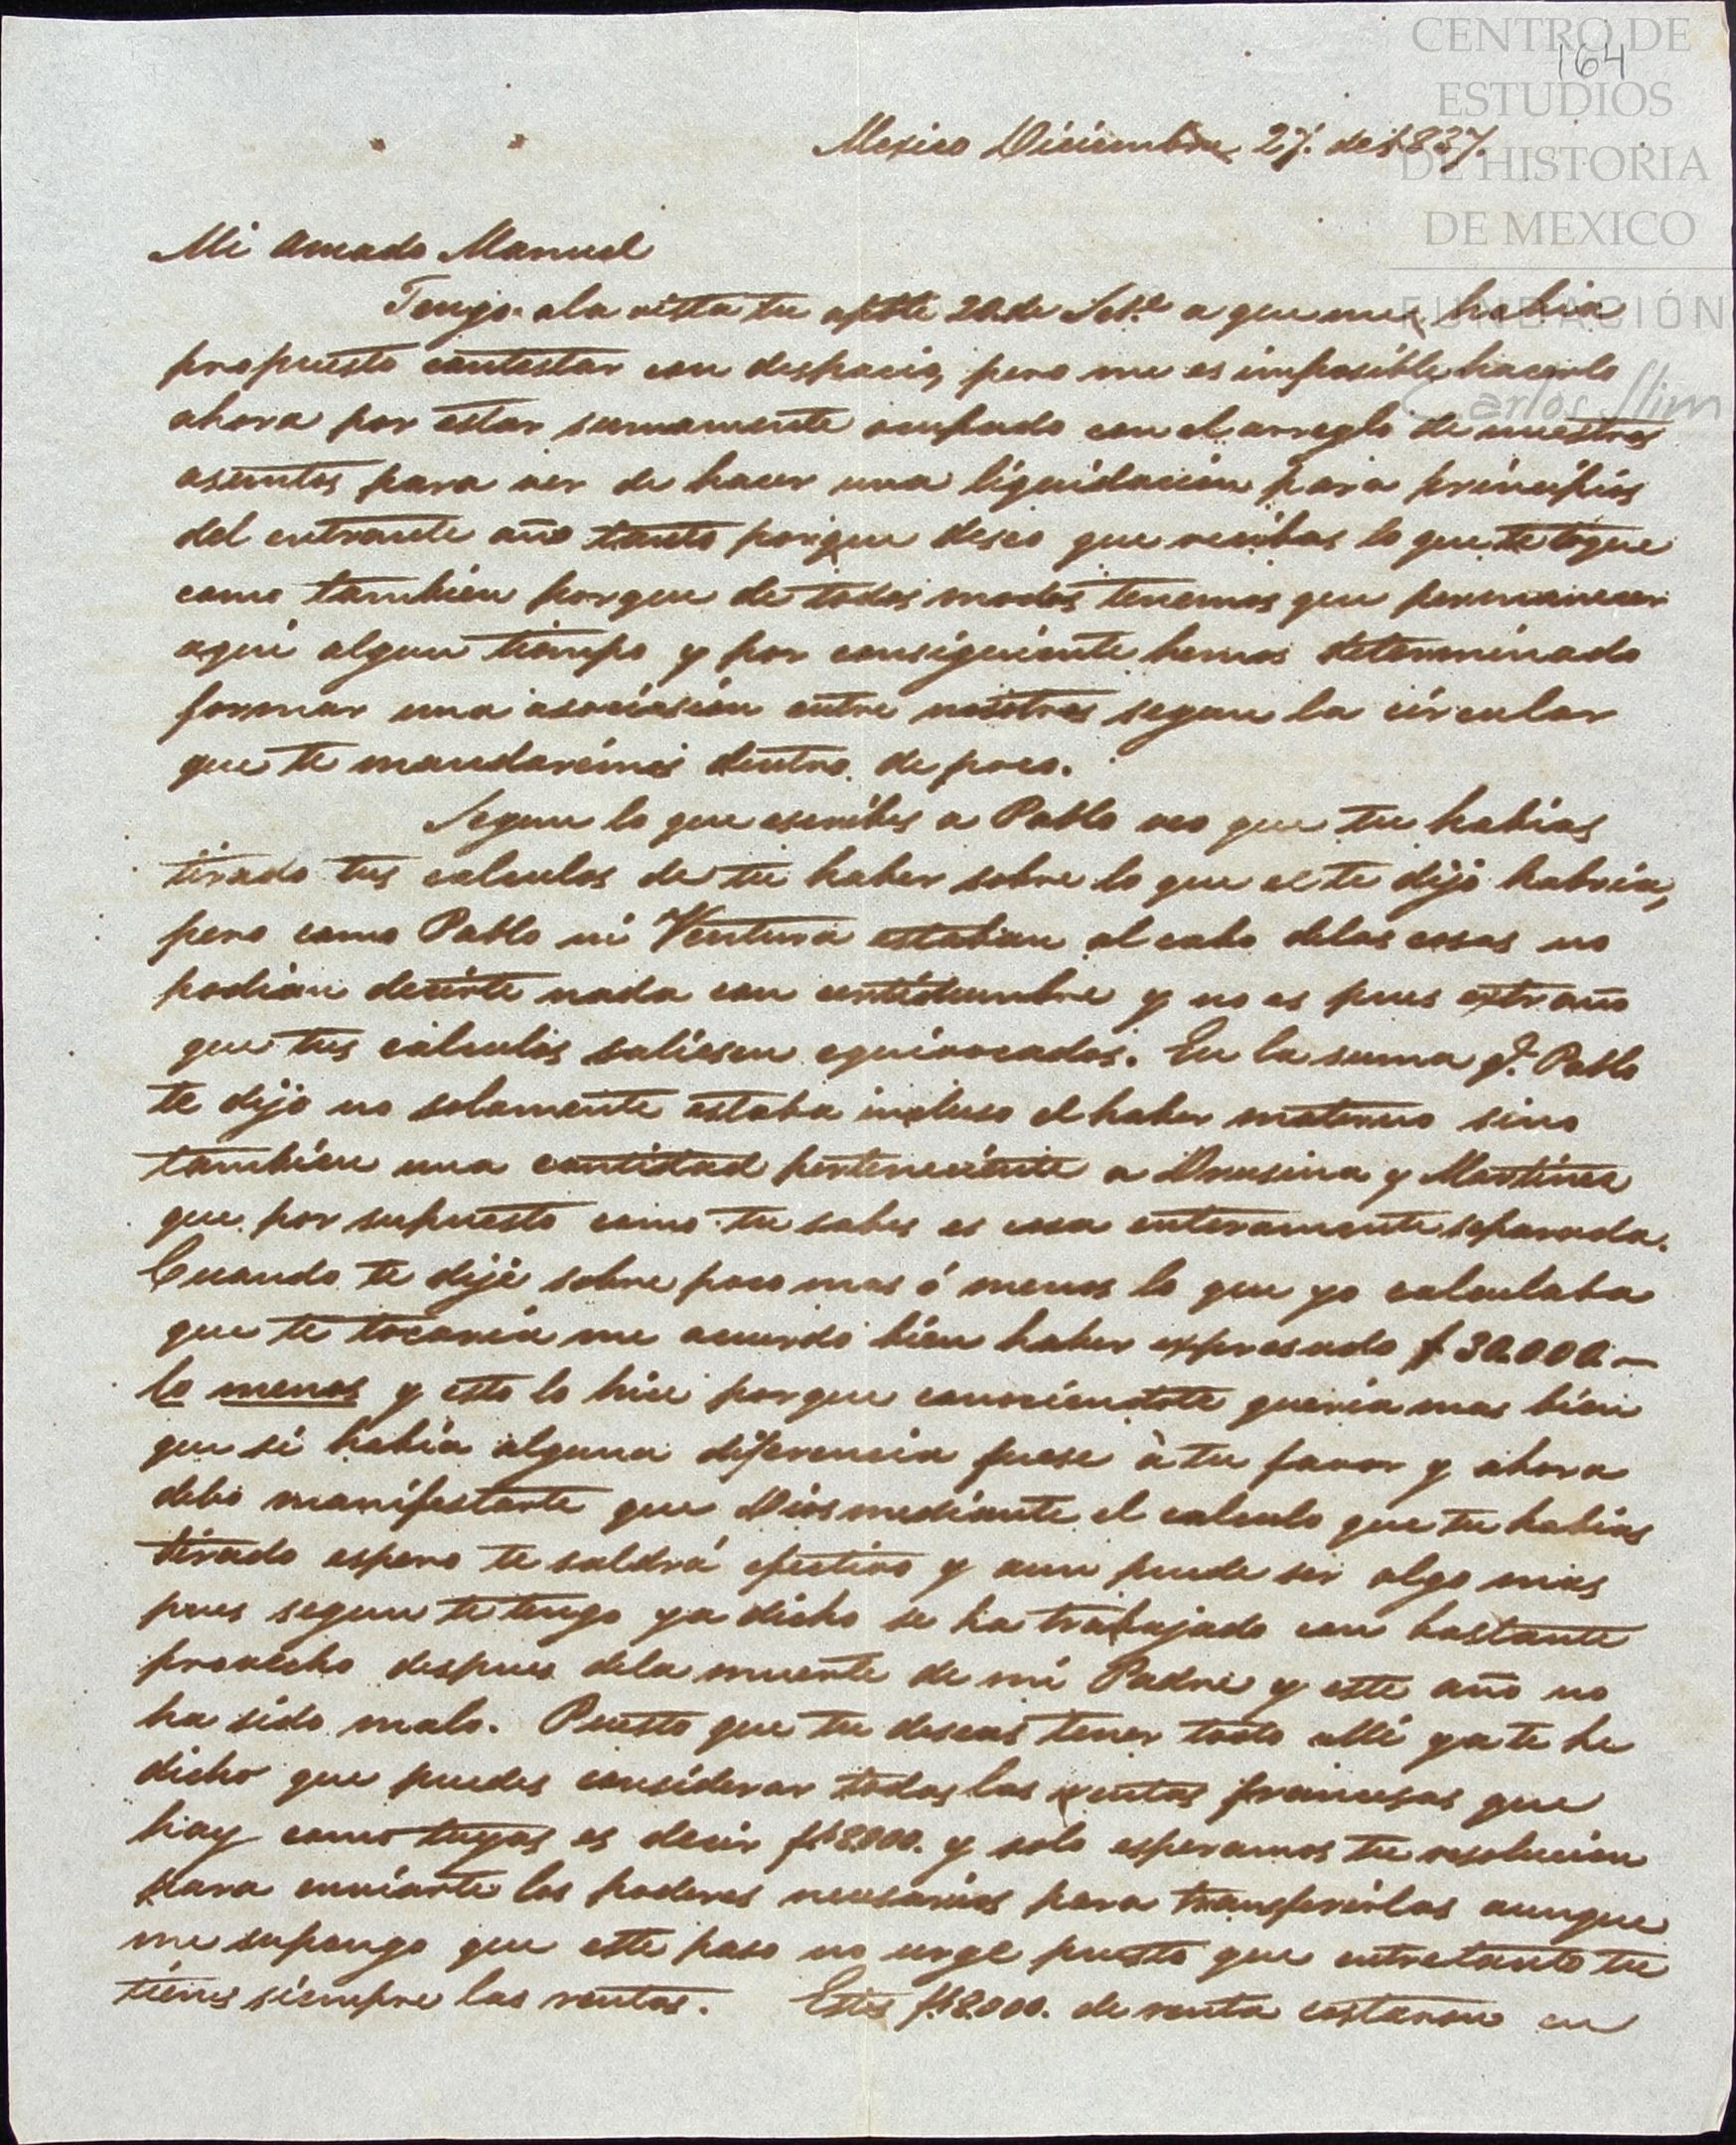 CENTRO DE
164
ESTUDIOS
DE HISTORIA
DE MEXICO
FUNDACIÓN
Carlos Slim
Mexico Diciembre 27. de 1837.
Mi Amado Manuel
Tengo a la vista tu aptble 20 de Setre a que me habia
propuesto contestar con despacio, pero me es imposible hacerlo
ahora por estar sumamente ocupado con el arreglo de nuestros
asuntos para ver de hacer una liquidacion para principios
del entrante año tanto porque deseo que recibas lo que te toque
como tambien porque de todos modos tenemos que permanecer
aqui algun tiempo y por consiguiente hemos determinado
formar una asociasion entre nosotros segun la circular
que te mandarémos dentro de poco.
Segun lo que escribes a Pablo veo que tu habias
tirado tus calculos de tu haber sobre lo que el te dijo habria,
pero como Pablo ni Ventura estaban al cabo delas cosas no
podian decirte nada con certidumbre y no es pues extraño
que tus calculos saliesen equivocados. En la suma q.e Pablo
te dijo no solamente estaba incluso el haber materno sino
tambien una cantidad perteneciente a Drusina y Martinez
que por supuesto como tu sabes es cosa enteramente separada.
Cuando te dije sobre poco mas ó menos lo que yo calculaba
que te tocaria me acuerdo bien haber expresado $ 30.000.—
lo menos y esto lo hice porque conociendote queria mas bien
que si habia alguna diferencia fuese à tu favor y ahora
debo manifestarte que Dios mediante el calculo que tu habias
tirado espero te saldrá efectivo y aun puede ser algo mas
pues segun te tengo ya dicho se ha trabajado con bastante
provecho despues dela muerte de mi Padre y este año no
ha sido malo. Puesto que tu deseas tener todo allí ya te he
dicho que puedes considerar todas las rentas francesas que
hay como tuyas es decir f 8.000. y solo esperamos tu resolucion
para enviarte los poderes necesarios para transferirlas aunque
me supongo que este paso no urge puesto que entretanto tu
tienes siempre las rentas. Estos f 8.000. de renta costaron en